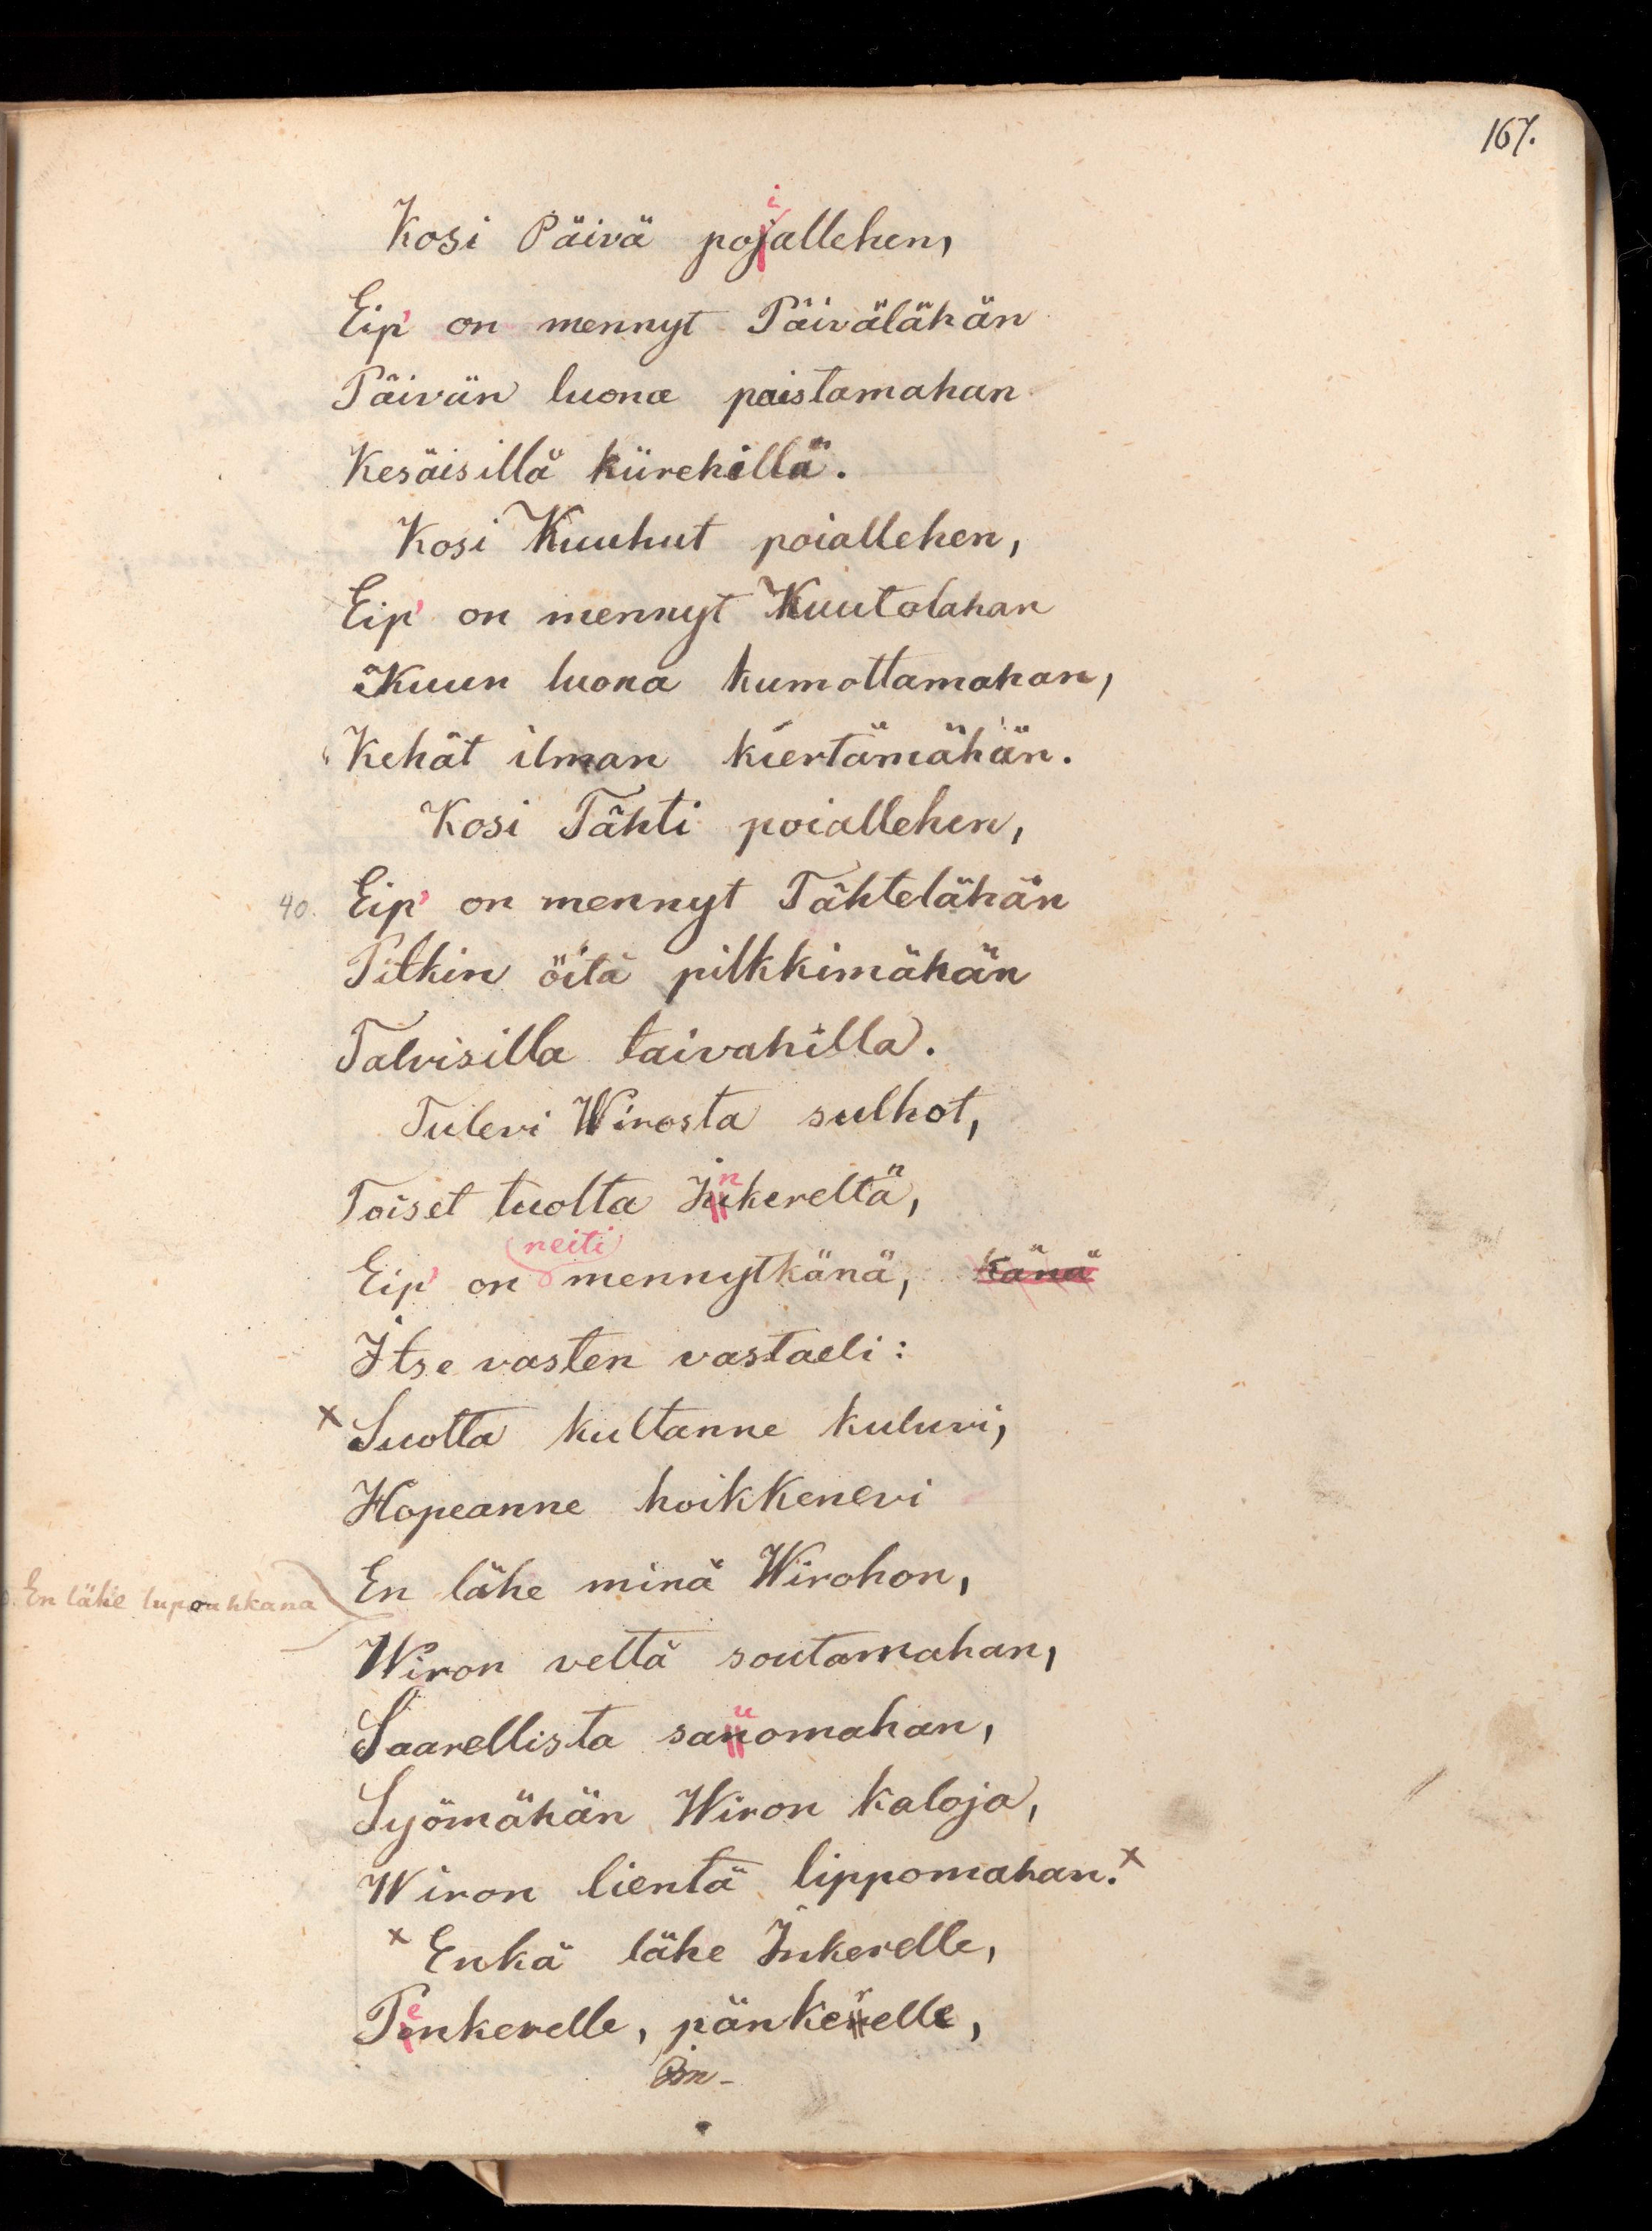 167.
Kosi Päivä poiallehen,
Eip' on mennyt Päivälähän
Päivän luona paistamahan
Kesäisillä kiirehillä.
Kosi Kuuhut poiallehen,
Eip' on mennyt Kuutolahan
Kuun luona kumottamahan,
Kehät ilman kiertämähän.
Kosi Tähti poiallehen,
40. Eip' on mennyt Tähtelähän
Pitkin öitä pilkkimähän
Talvisilla taivahilla.
Tulevi Wirosta sulhot,
Toiset tuolta Inkereltä,
neiti
Eip' on mennytkänä, känä
Itse vasten vastaeli:
x Suotta kultanne kuluvi,
Hopeanne hoikkenevi
En lähe minä Wirohon,
En lähe lupouhkana
Wiron vettä soutamahan,
Saarellista sauomahan,
Syömähän Wiron kaloja,
Wiron lientä lippomahan. x
x Enkä lähe Inkerelle,
Penkerelle, pänkerelle,